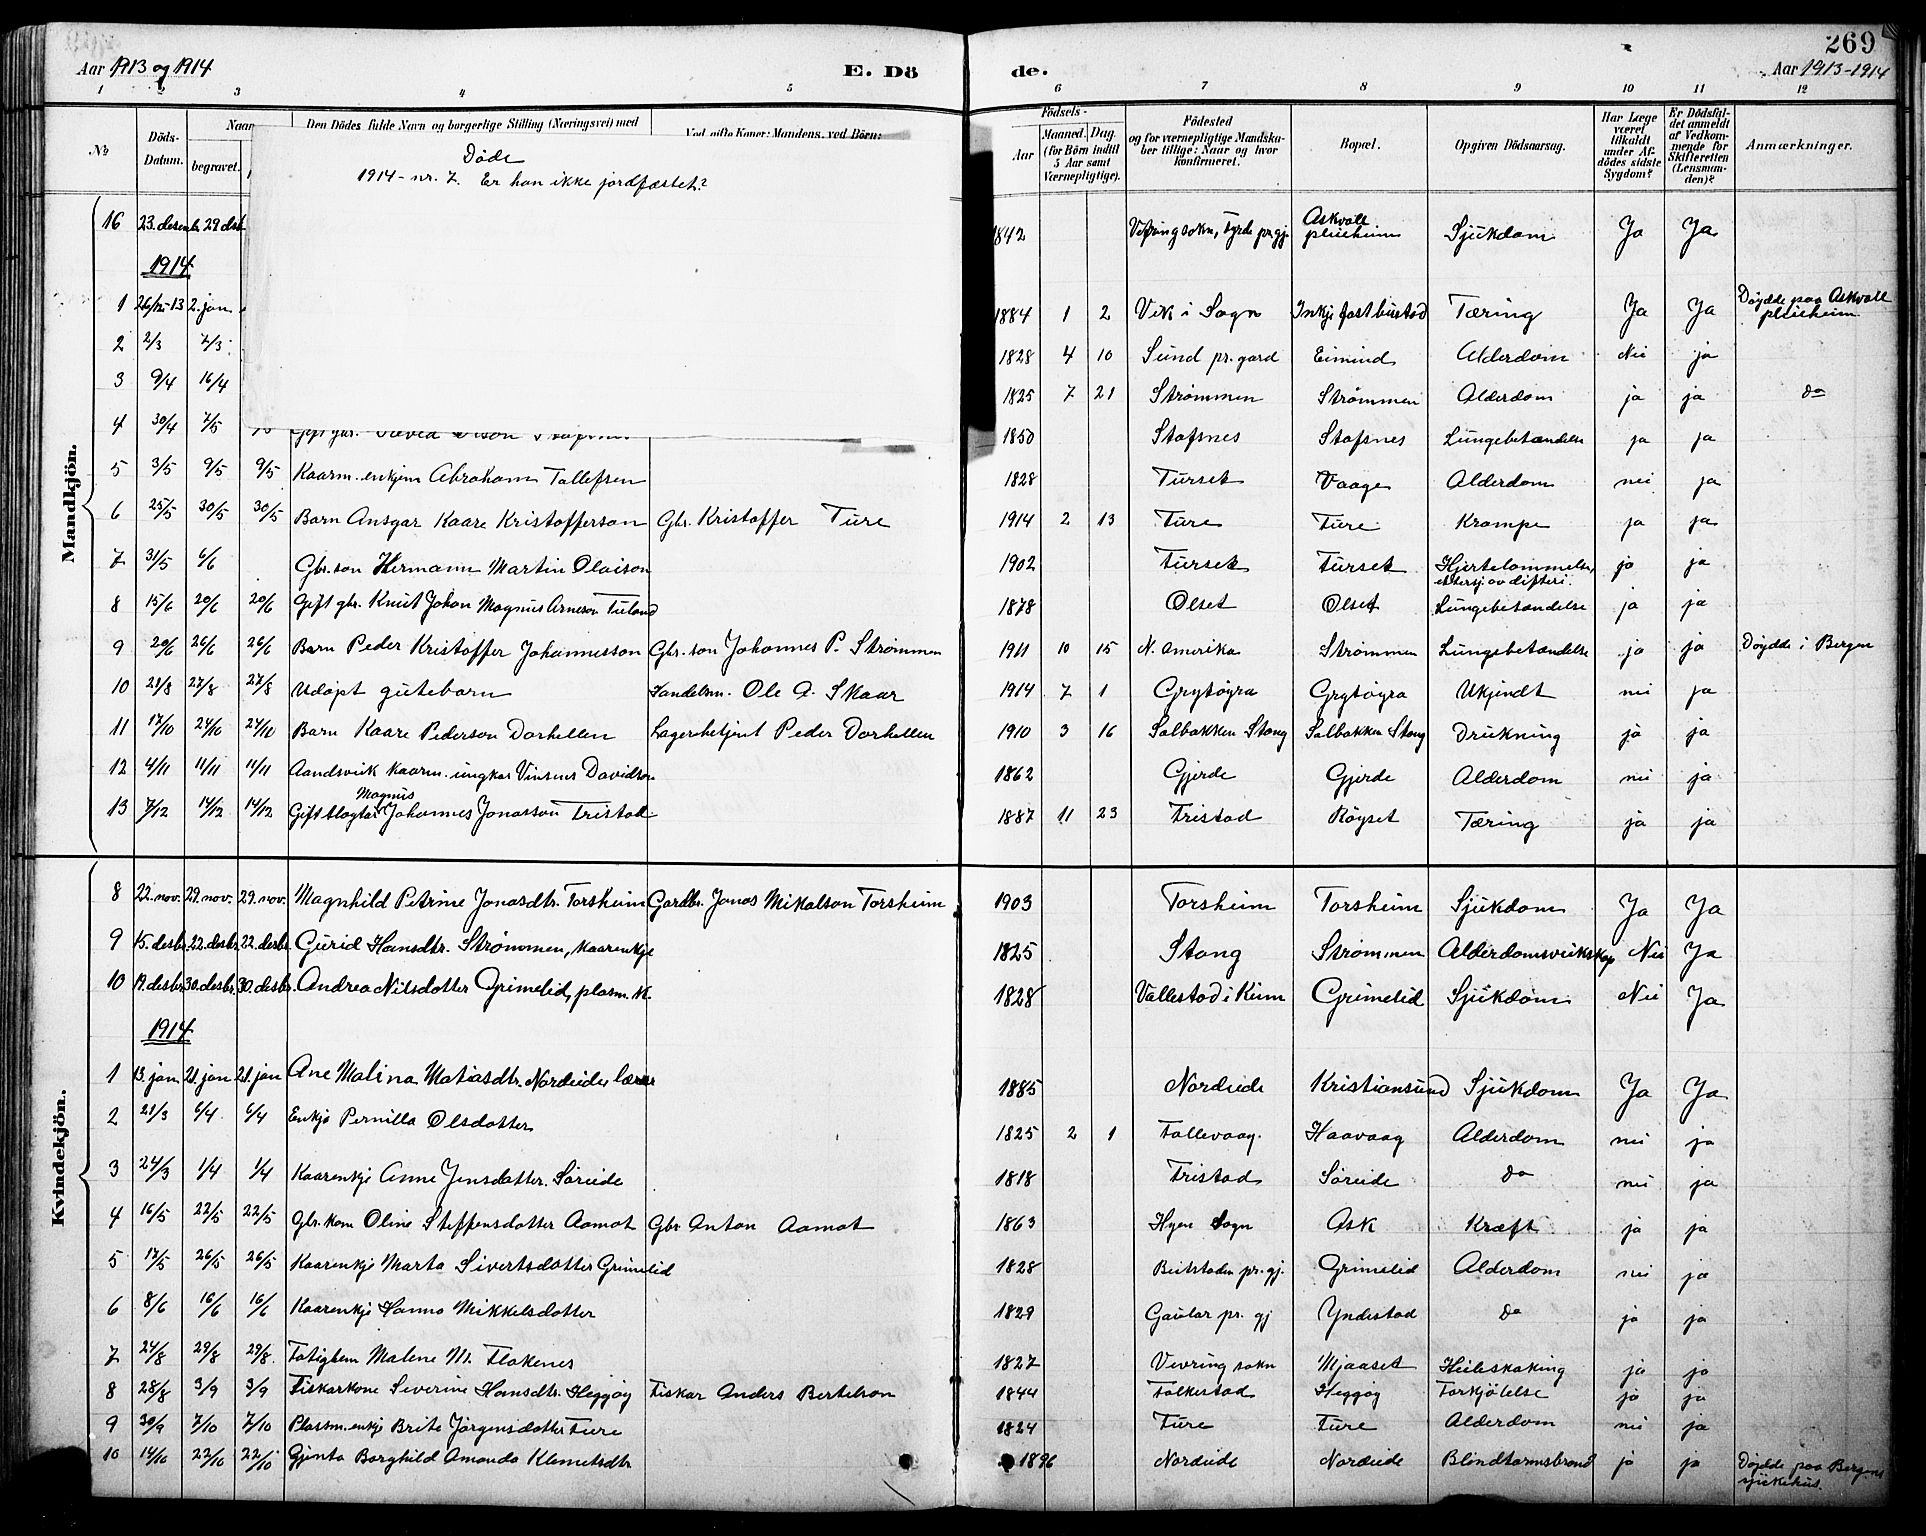 269
Aar 1913 og 1914 E. Dö de. Aar 1913-1914
1 2 3 4 5 6 7 8 9 10 11 12
№ Döds-Datum. Naar begravet. Den Dödes fulde Navn og borgerlige Stilling (Næringsvei) med Ved gifte Koner: Mandens, ved Börn:
Födsels- Aar Maaned. Dag. (for Börn indtil 5 Aar samt Værnepligtige). Födested og for værnepligtige Mandskaber tillige: Naar og hvor konfirmeret. Bopæl. Opgiven Dödsaarsag. Har Læge været tilkaldt under Afdödes sidste Sygdom? Er Dödsfaldet anmeldt af Vedkommende for Skifteretten (Lensmanden)? Anmærkninger.
Döde
1914 - nr. 7. Er han ikke jordfæstet?
Mandkjön.
16 23. desenb. 29 dsb 1842 Vevringsokn, Fyrde pr.gj. Askvoll pleieheim Sjukdom Ja Ja
1914
1 26/12-13 2. jan 1884 1 2 Vik i Sogn Inkje fast bustad Tæring Ja Ja Döydde paa Askvoll pleieheim
2 2/3 7/3 1828 4 10 Sund pr. gard Eimind Alderdom Nei ja
3 9/4 16/4 1825 7 21 Strømmen Strømmen Alderdom ja ja do
4 30/4 7/5 1850 Stafsnes Stafsnes Lungebetændelse ja ja
5 3/5 9/5 9/5 Kaarm. enkjem Abraham Tollefsen 1828 Furset Vaage Alderdom nei ja
6 25/5 30/5 30/5 Barn Ansgar Kaare Kristofferson Gbr. Kristoffer Fure 1914 2 13 Fure Fure Krampe ja ja
7 31/5 6/6 Gbr. son Hermann Martin Olaison 1902 Fursek Fursek Hjertelammelse, ettersj. av difteri. ja ja
8 15/6 20/6 20/6 Gift gbr. Knut Johan Magnus Arneson Tuland 1878 Olset Olset Lungebetændelse ja ja
9 20/6 26/6 26/6 Barn Peder Kristoffer Johannesson Gbr. son Johannes P. Strømmen 1911 10 15 N. Amerika Strømmen Lungebetændelse ja ja Døydde i Bergen
10 21/8 27/8 27/8 Udøpt gutebarn Handelsm. Ole A. Skaar 1914 7 1 Grytøyra Grytøyra Ukjendt nei ja
11 17/10 24/10 24/10 Barn Kaare Pederson Dorhellen Lagerbetjent Peder Dorhellen 1910 3 16 Salbakken Stong Salbakken Stong Drukning ja ja
12 4/11 11/11 11/11 Aandsveik kaarm. ungkar Vinsens Davidson 1862 Gjerde Gjerde Alderdom nei ja
Magnus
13 7/12 14/12 14/12 Gift slagtar Johannes Jonasson Tristad 1887 11 23 Tristad Røyset Tæring ja ja
Kvindekjön.
8 22. nov. 29. nov. 29. nov. Magnhild Petrine Jonasdtr. Torsheim Gardbr. Jonas Mikalson Torsheim 1903 Torsheim Torsheim Sjukdom Ja Ja
9 15. desbr. 22. desbr. 22. desbr. Gurid Hansdtr. Strømmen, kaarenkje 1825 Stong Strømmen Alderdomsveikskap Nei Ja
10 19. desbr. 30. desbr. 30. desbr. Andrea Nilsdotter Grimelid, plasm. K. 1828 Vallestad i Kinn Grimelid Sjukdom Nei Ja
1914
1 13. jan 21. jan 21. jan Ane Malina Matiasdtr. Nordeide, lærar 1885 Nordeide Kristiansund Sjukdom Ja Ja
2 21/3 6/4 6/4 Enkje Pernilla Olsdotter 1825 2 1 Follevaag Haavaag Alderdom nei ja
3 24/3 1/4 1/4 Kaarenkje Anne Jensdatter Søreide 1818 Tristad Søreide do nei ja
4 16/5 22/5 22/5 Gbr. kone Oline Steffensdotter Aamot Gbr. Anton Aamot 1863 Hyen Sogn Ask Kræft ja ja
5 17/5 26/5 26/5 Kaarenkje Marta Sivertsdotter Grimelid 1828 Beitstaden pr. gj. Grimelid Alderdom nei ja
6 8/6 16/6 16/6 Kaarenkje Hanna Mikkelsdotter 1829 Gaular pr. gj Yndestad do ja ja
7 24/8 29/8 29/8. Fatiglem Malene M. Flokenes 1827 Vevring sokn Mjaaset Heileskaking ja ja
8 28/8 3/9 3/9 Fiskarkone Severine Hansdtr. Heggøy Fiskar Anders Bertelson 1844 Folkestad Heggøy Forkjølelse ja ja
9 30/9 7/10 7/10 Plassm. enkje Brite Jørgensdotter Fure 1824 Fure Fure Alderdom nei ja
10 14/10 22/10 22/10 Gjenta Borghild Amanda Klemetsdtr 1896 Nordeide Nordeide Blindtarmsbrand ja ja Døydde paa Bergens sjukehus.